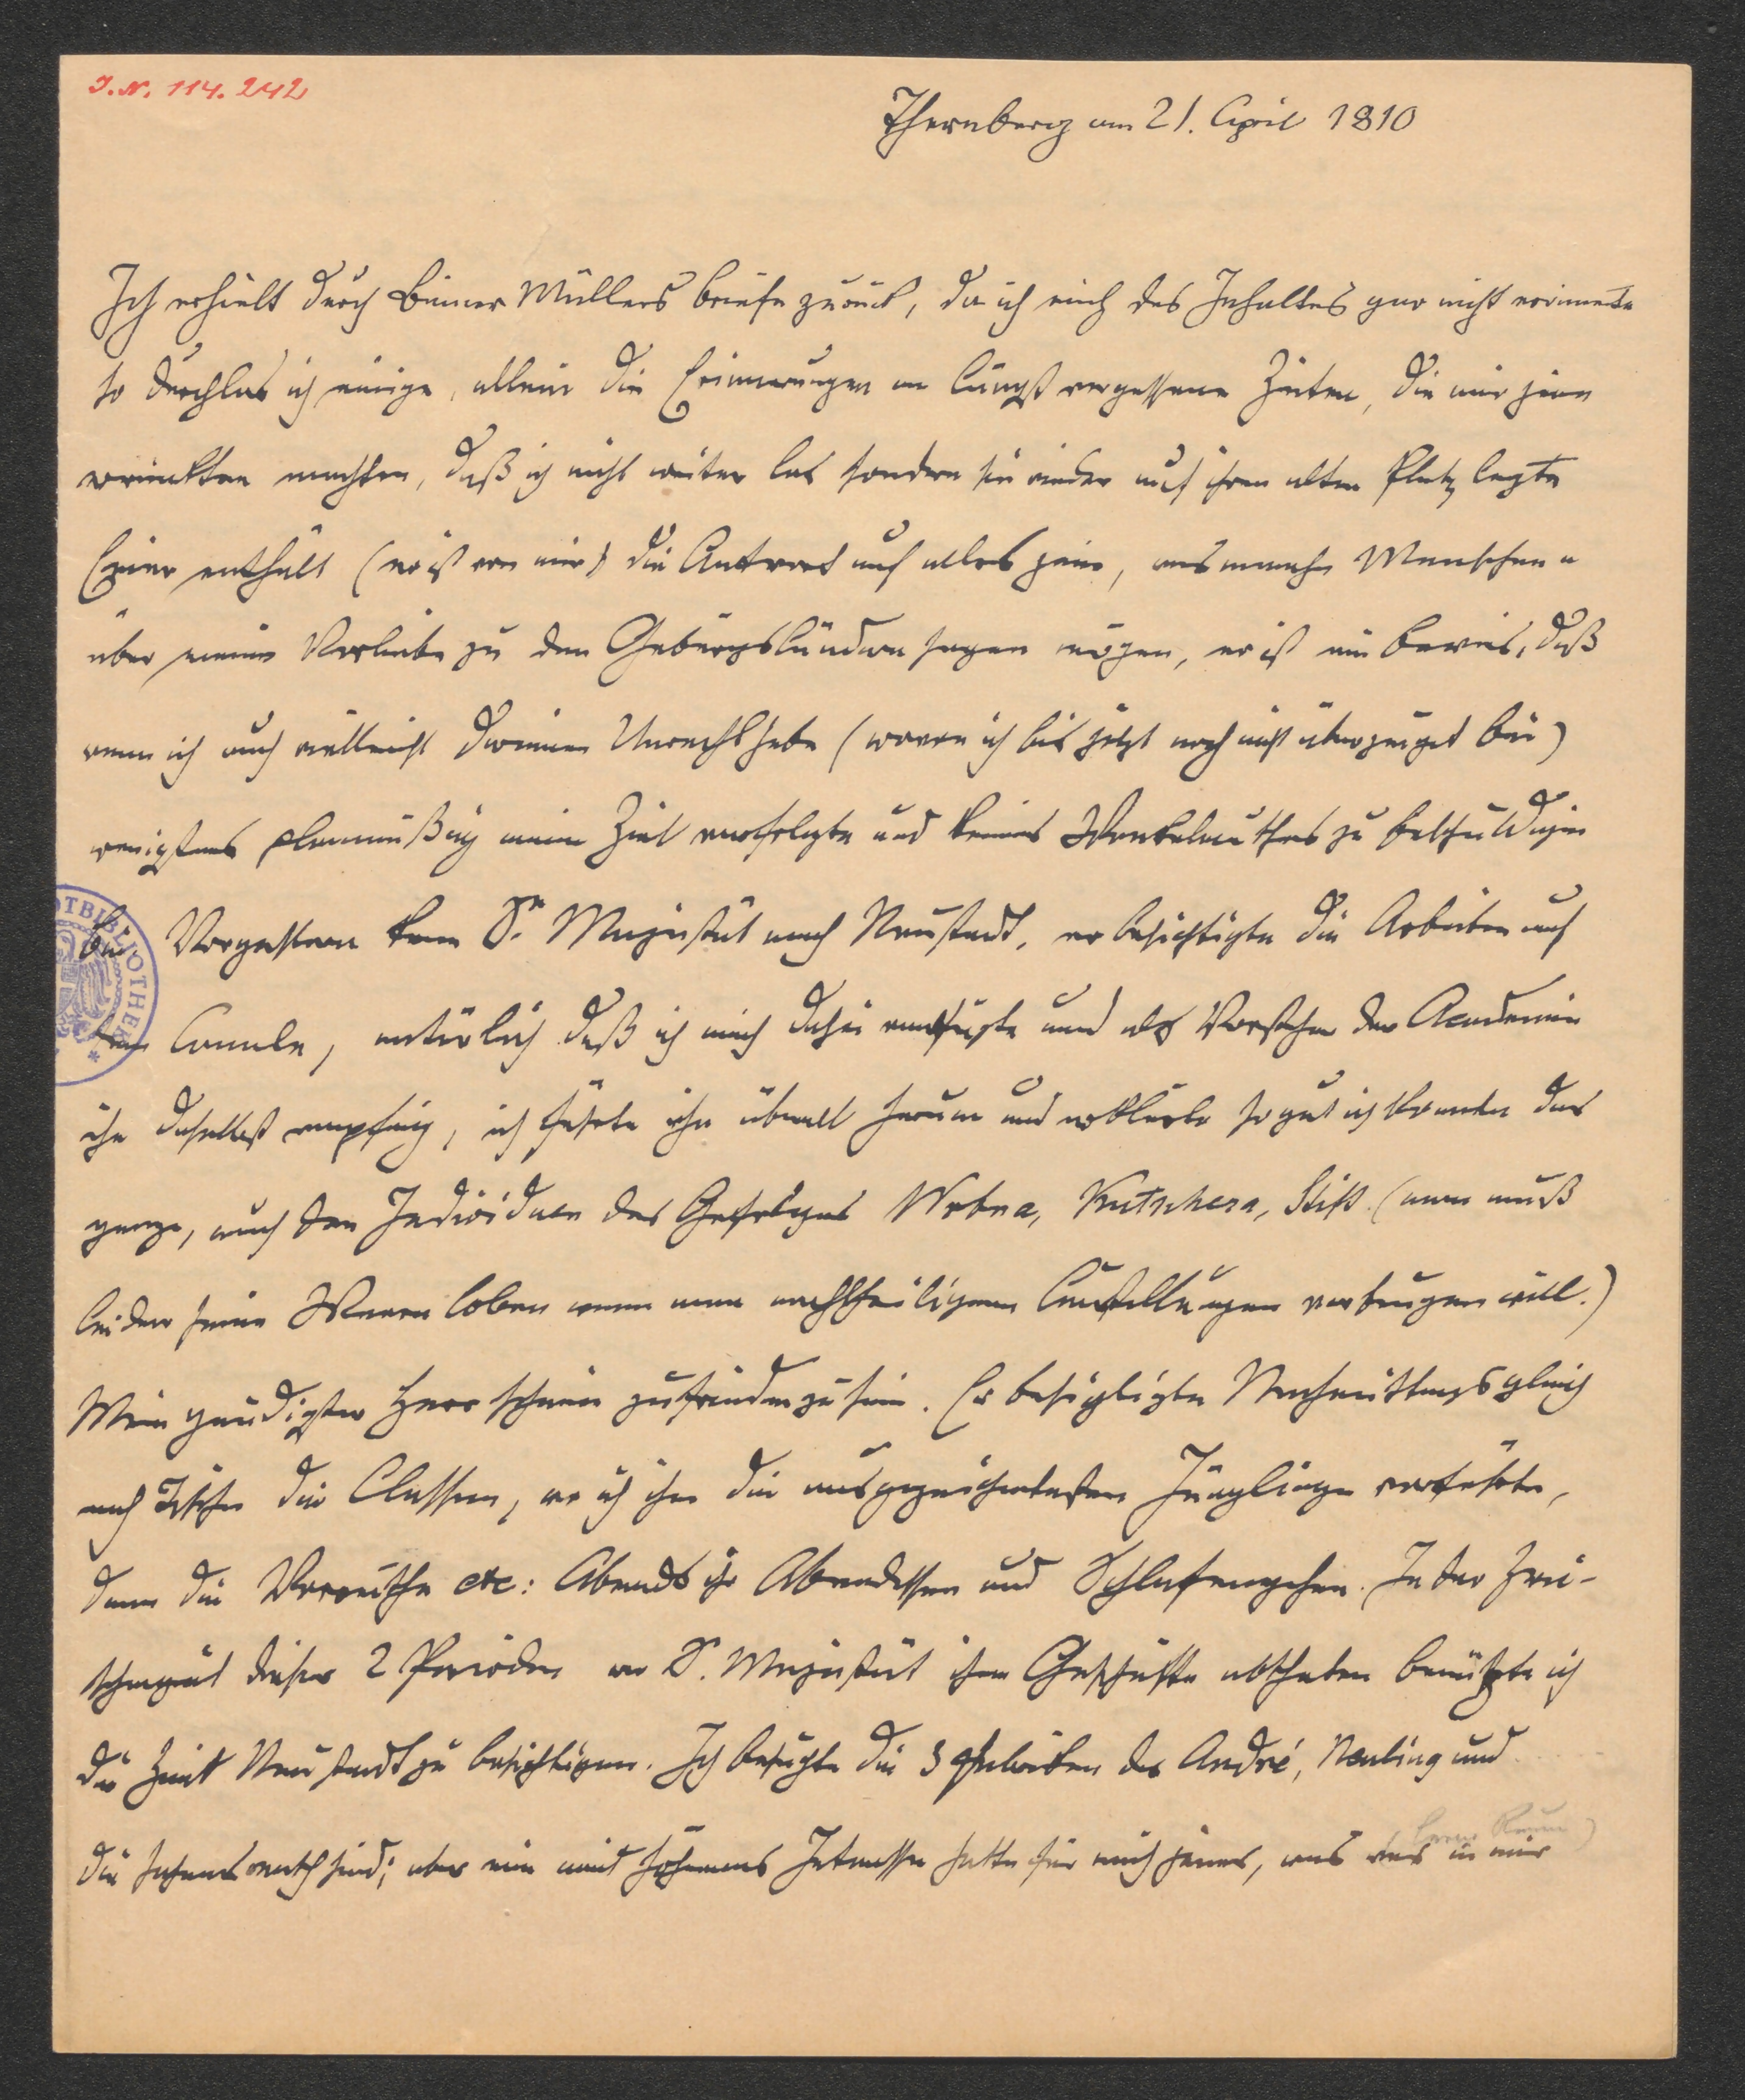 J.N. 114.242
Thernberg am 21. April 1810
Ich erhielt durch Müllers briefe zurück, da ich mich des Inhaltes gar nicht erinnerte
so durchlas ich einige, allein die Erinnerungen an längst vergessene Zeiten, die mir jene
erweckten machten, daß ich nicht weiter las sondern sie wieder auf ihren alten Platz legte
Einer enthält (er ist von mir) die Antwort auf alles jene, was manche Menschen
über meine Vorliebe zu den Gebürgsländern sagen mögen, er ist ein beweis, daß
wenn ich auch vielleicht darinnen Unrecht habe (wovon ich bis jetzt noch nicht überzeuget bin)
wenigstens planmäßig mein Ziel verfolgte und keines Wankelmuthes zu beschuldigen
bin Vorgestern kam Sr Majestät nach Neustadt, er besichtigte die Arbeiten auf
dem Canale, natürlich daß ich mich dahin verfügte und als Vorsteher der Academie
ihn daselbst empfing, ich führte ihn überall herum und erklärte so gut ich konnte das
ganze, auch den Individuen des Gefolges Wrbna, Kutschera, Stift (man muß
leider seine Waren loben wenn man nachtheiligen vorbeugen will.)
Mein gnädigster Herr schien zufrieden zu sein. Er besichtigte Nachmittags gleich
nach Tische die Classen, wo ich ihm die ausgezeichnetesten Jünglinge vorführte,
dann die etc: Abends ihr Abendessen und Schlafengehen. In der Zwi-
schenzeit dieser 2 Perioden wo S. Majestät ihre Geschäfte abthaten benützte ich
die Zeit Neustadt zu besichtigen. Ich besuchte die 3 Fabriken des André, und
die sehenswerth sind; aber ein weit höheres Interesse hatte für mich jenes, was in mir